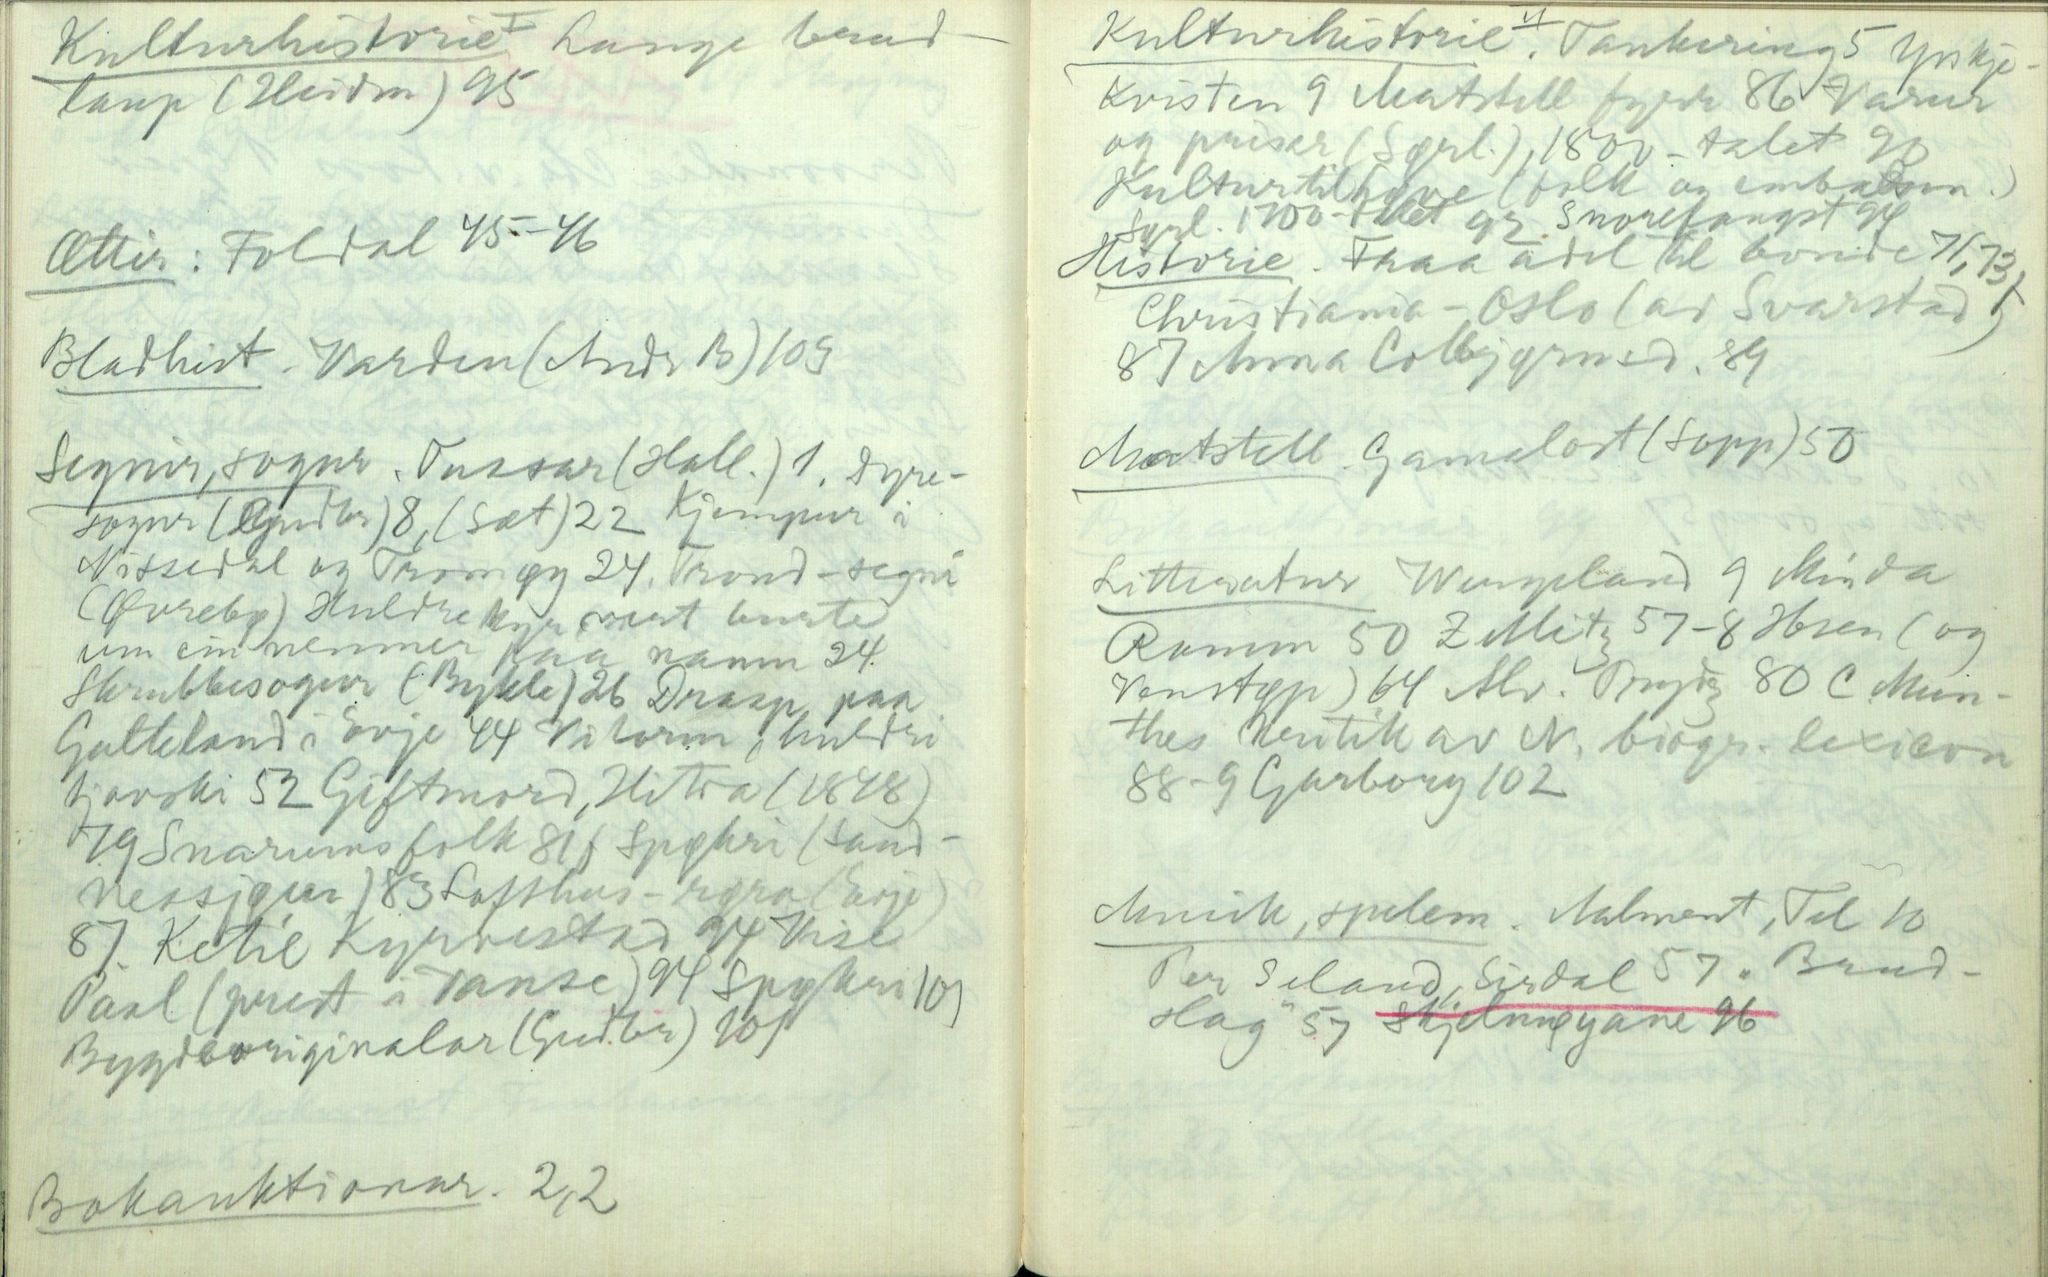 Kulturhistorie I Lange brud-
laup (Heidm) 95
Ættir: Foldal 45-46
Bladhist. Varden (Andr B) 103
Segnir, sogur. Tussar (Hall.) 1. Dyre-
sogur (Gudbr) 8, (Sæt) 22 Kjempur i
Nissedal og Tromøy 24. Trond-segni
(Øvrebø) Huldrekyr vert burte
um ein nemner paa namn 24
Skrubbesogur (Bykle) 26 Draap paa
Galteland i Evje 44 Vitorm, huldri
52 Giftmord, Hitra (1848)
79 Snarumsfolk 81f Spøkri (Sand-
nessjøen) 83 Lofthus-røra (Evje)
87. Ketil Kyrvestad 94 Vise
Paal (prest i Vanse) 94 Spøkri 101
Bygdeoriginalar (Gudbr) 101
Bokauktionar. 2,2
Kulturhistorie II. Tankering 5 Yrkje-
Kvisten 9 Matstell fyrr 86 Varur
og prisar (Sørl.), 1800-talet 90
Kulturtilhøve (folk og embedsm.)
Sørl. 1700-talet 92. Snorefangst 94
Historie. Fraa adel til bonde 71, 73,
Christiania-Oslo (av Svarstad)
87 Anna Colbjørnsd. 89
Matstell Gamalost (Sopp) 50
Litteratur Wergeland 9 Minda
Ramm 50 Z Mitz 57-8 Ibsen (og
Venstøp) 64 Alv. Prydz 80 C Mun-
thes kritik av N. biogr. lexicon
88-9 Garborg 102
Musik, spelem. Malment, Tel 10
Per Seland, Sirdal 57 "Brud-
slag" 57 Skjelmøyane 96